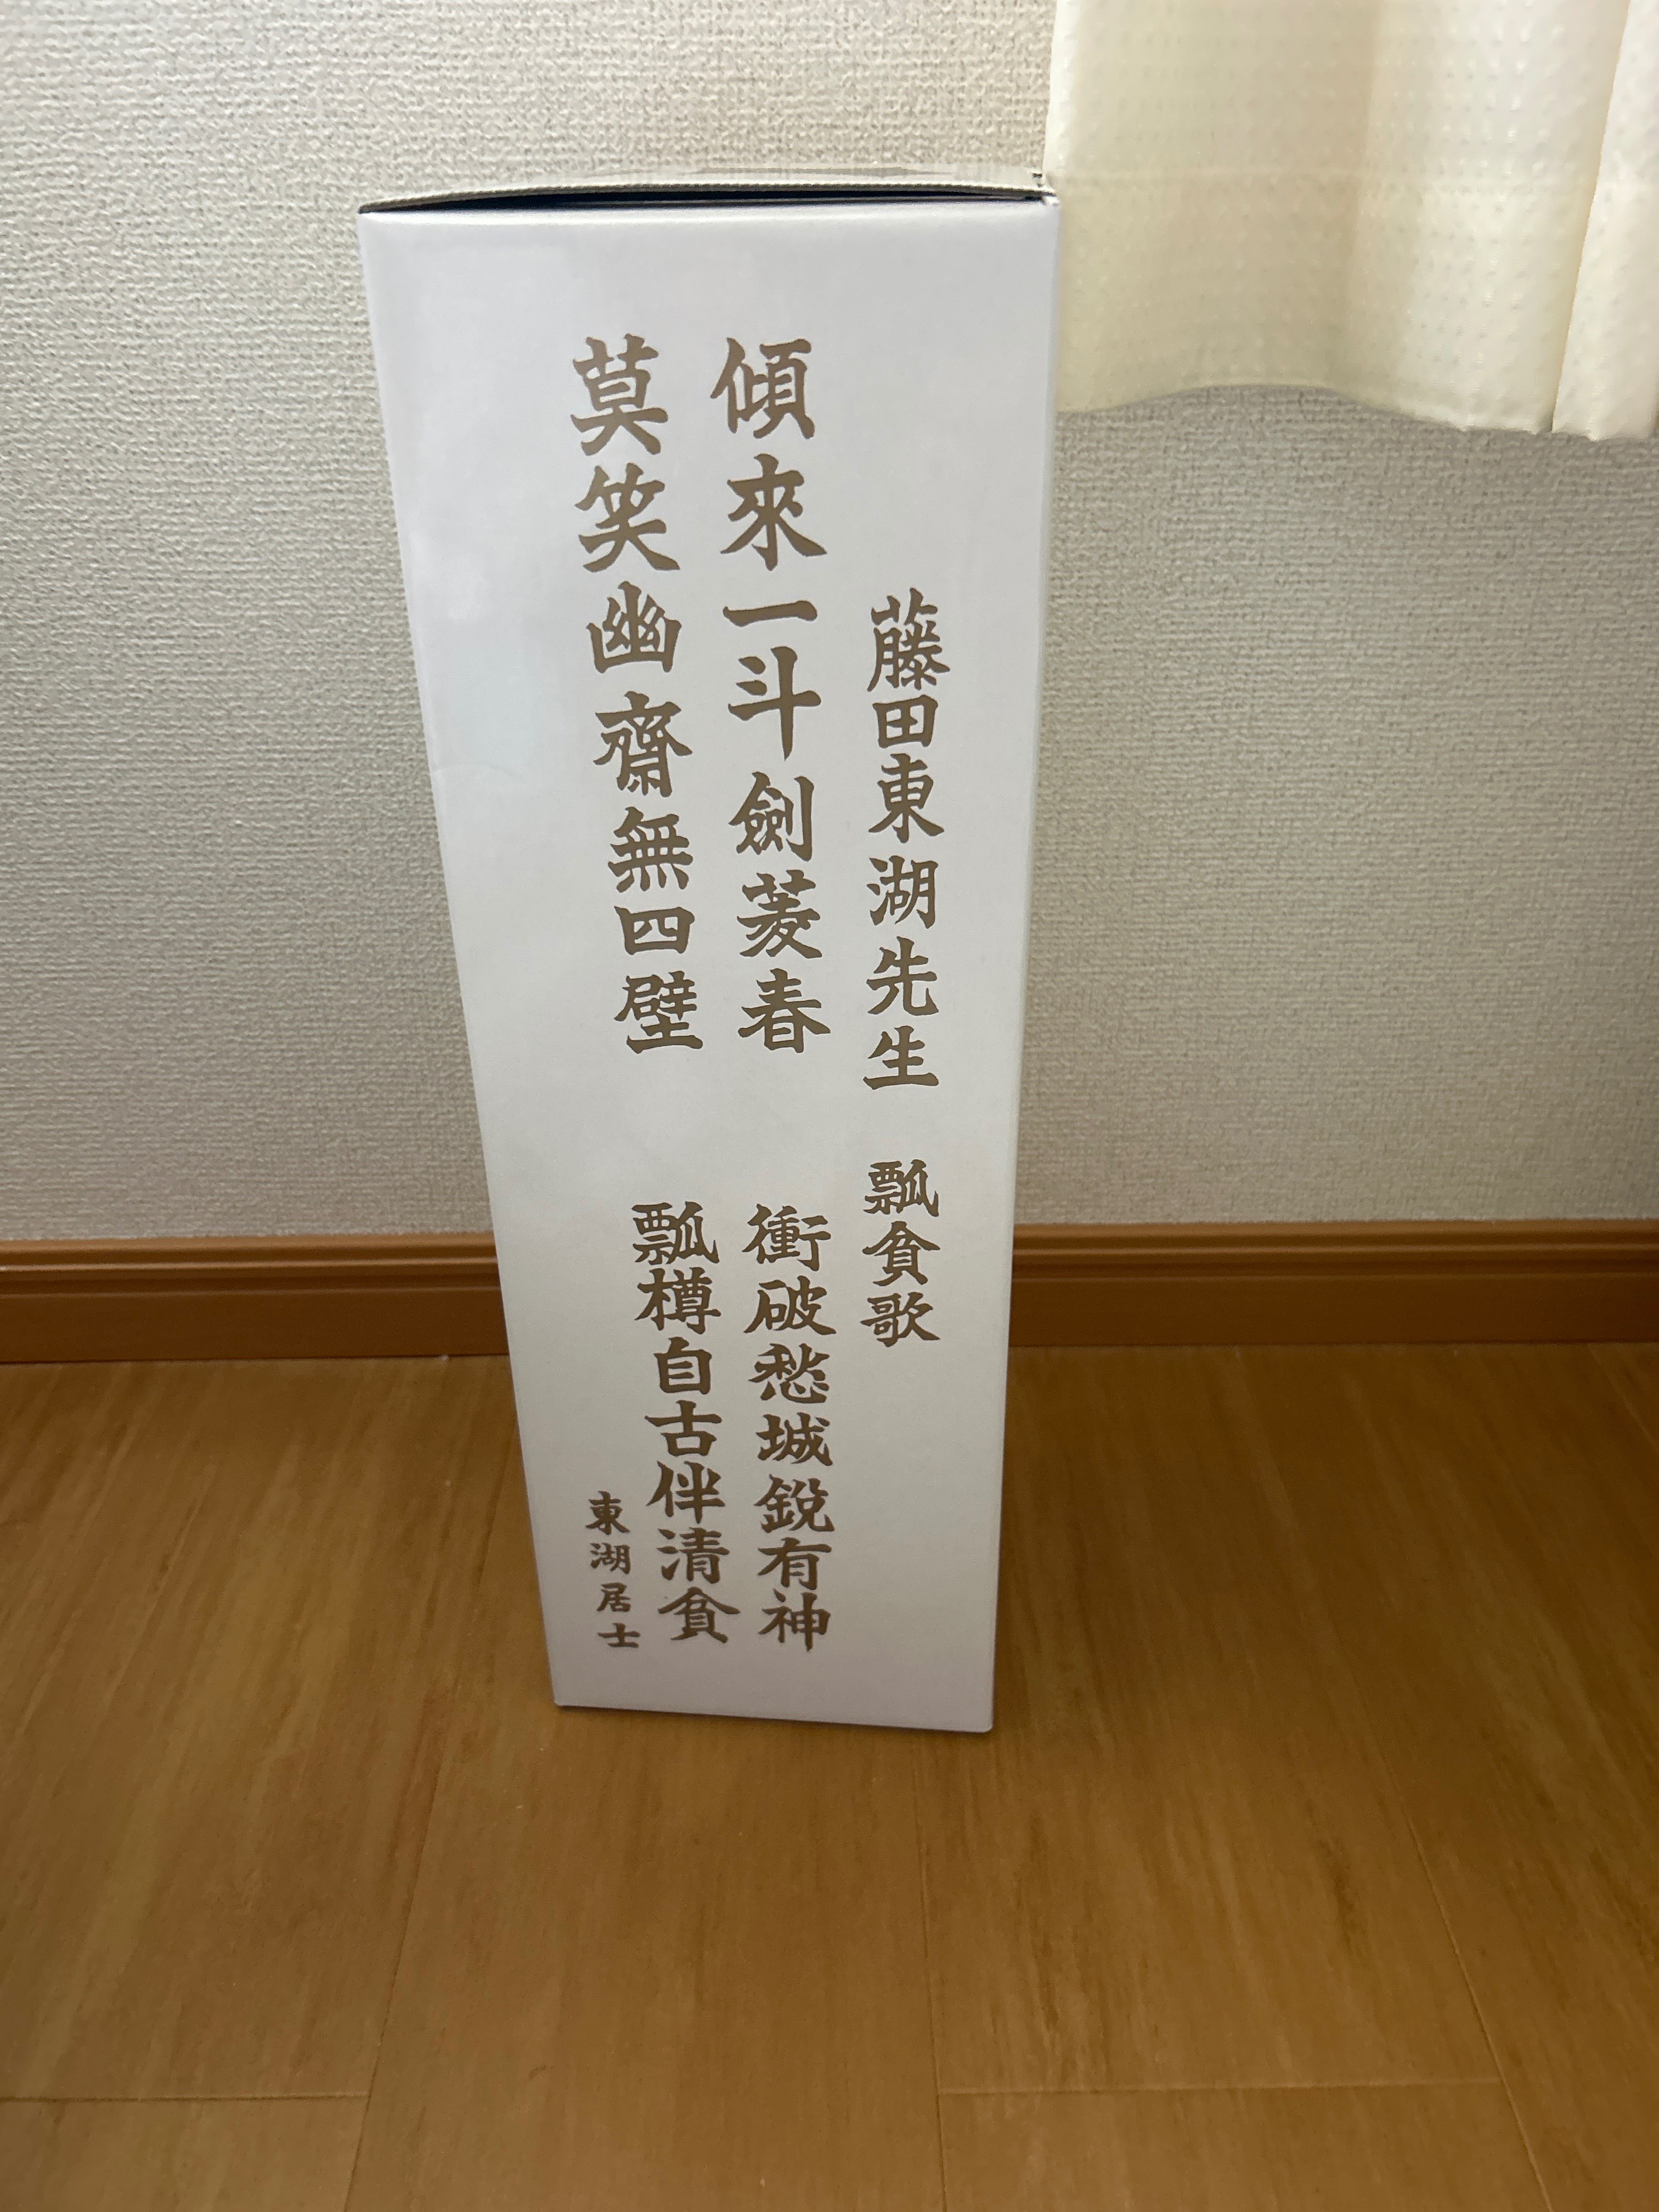 藤田東湖先生 瓢貧歌
傾來一斗劍菱春 衝破愁城銳有神
莫笑幽齋無四壁 瓢樽自古伴清貧
東湖居士